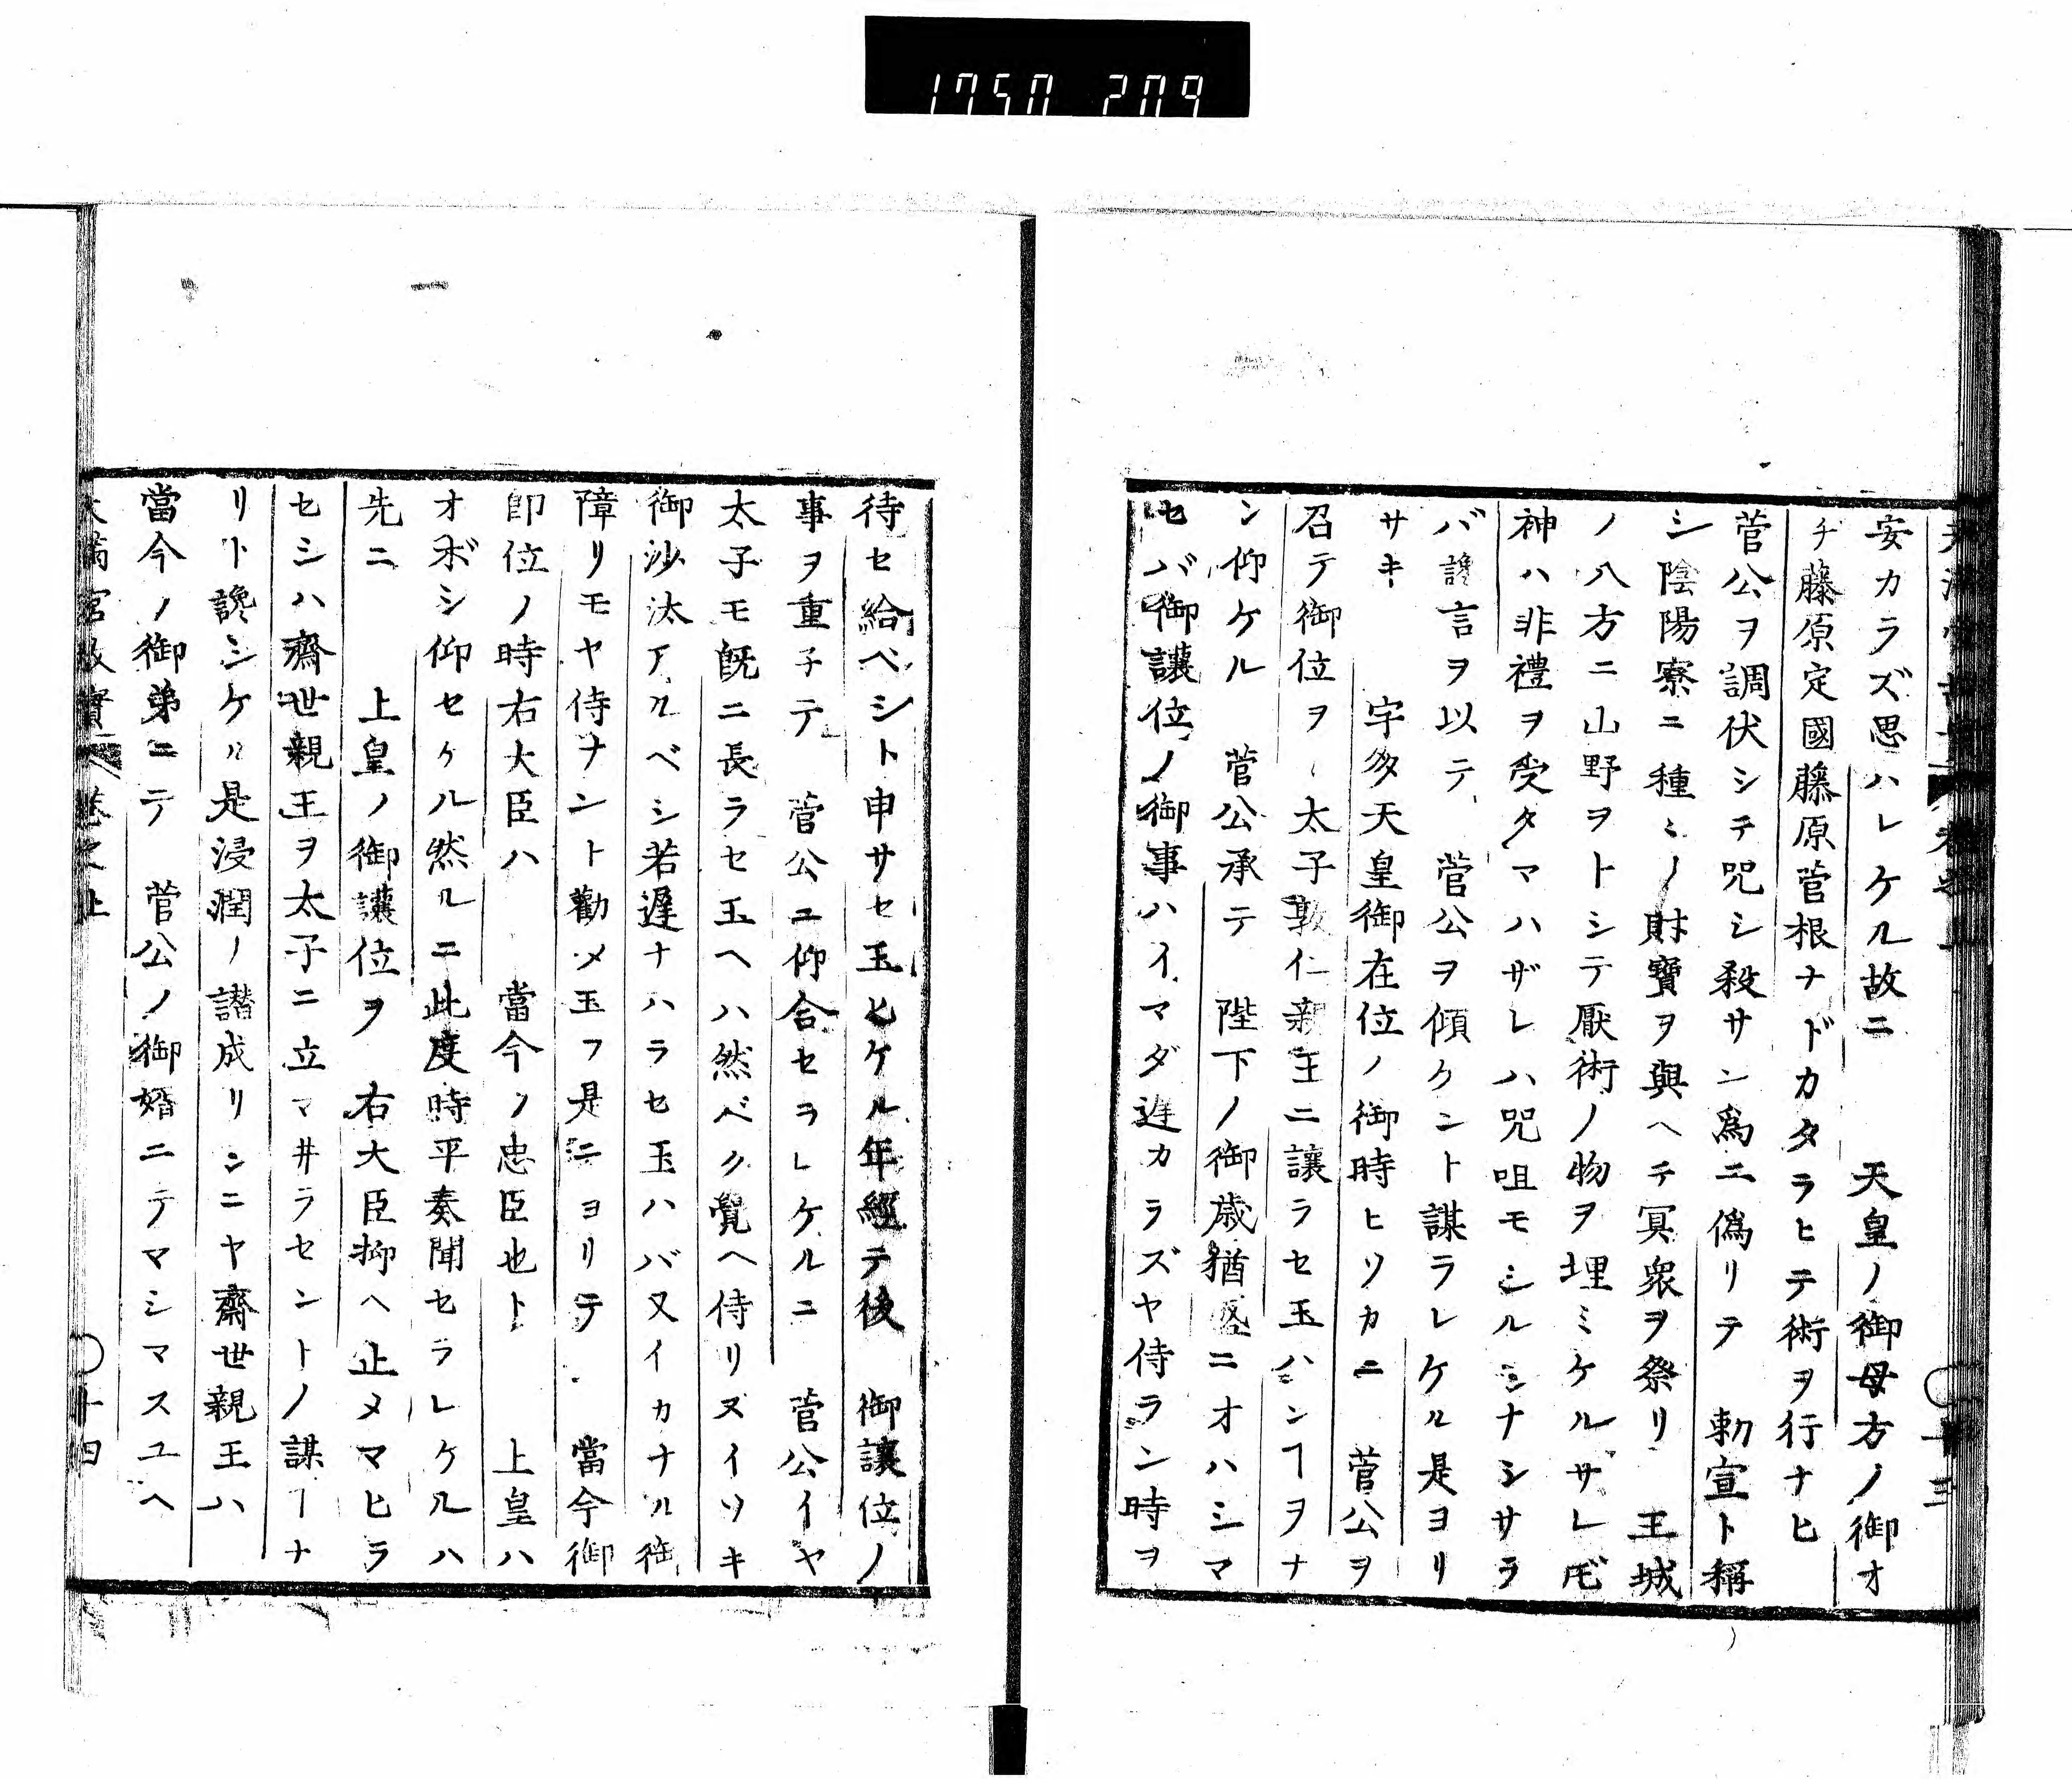 1750 209
安カラズ思ハレケル故ニ　天皇ノ御母方ノ御オ
チ藤原定國藤原菅根ナドカタラヒテ術ヲ行ナヒ
菅公ヲ調伏シテ咒シ殺サン爲ニ僞リテ　勅宣ト稱
シ陰陽寮ニ種ミノ財寶ヲ與ヘテ冥衆ヲ祭リ　王城
ノ八方ニ山野ヲトシテ厭術ノ物ヲ埋ミケルサレ𪜈
神ハ非禮ヲ受タマハザレハ咒咀モシルシナシサラ
バ讒言ヲ以テ　菅公ヲ傾ケント謀ラレケル是ヨリ
サキ　宇多天皇御在位ノ御時ヒソカニ　菅公ヲ
召テ御位ヲ　太子敦仁親王ニ讓ラセ玉ハンヿヲナ
ン仰ケル　菅公承テ　陛下ノ御歳猶盛ニオハシマ
セバ御讓位ノ御事ハイマダ遲カラズヤ侍ラン時ヲ
十三
待セ給ベシト申サセ玉ヒケル年經テ後　御讓位ノ
事ヲ重子テ　菅公ユ仰合セラレケルニ　菅公イヤ
太子モ既ニ長ラセ玉ヘハ然ベク覺ヘ侍リヌイソキ
御沙汰アルベシ若遲ナハラセ玉ハバ又イカナル御
障リモヤ侍ナント勸メ玉フ是ニヨリテ　當今御
卽位ノ時右大臣ハ　當今ノ忠臣也ト　上皇ハ
オボシ仰セケル然ルニ此度時平奏聞セラレケルハ
先ニ　上皇ノ御讓位ヲ　右大臣抑ヘ止メマヒラ
セシハ齊世親王ヲ太子ニ立マ井ラセントノ謀ヿナ
リト讒シケル是浸潤ノ譖成リシニヤ齋世親王ハ
當今ノ御弟ニテ　菅公ノ御婿ニテマシマスユヘ
天滿宮故實 卷之上
十四